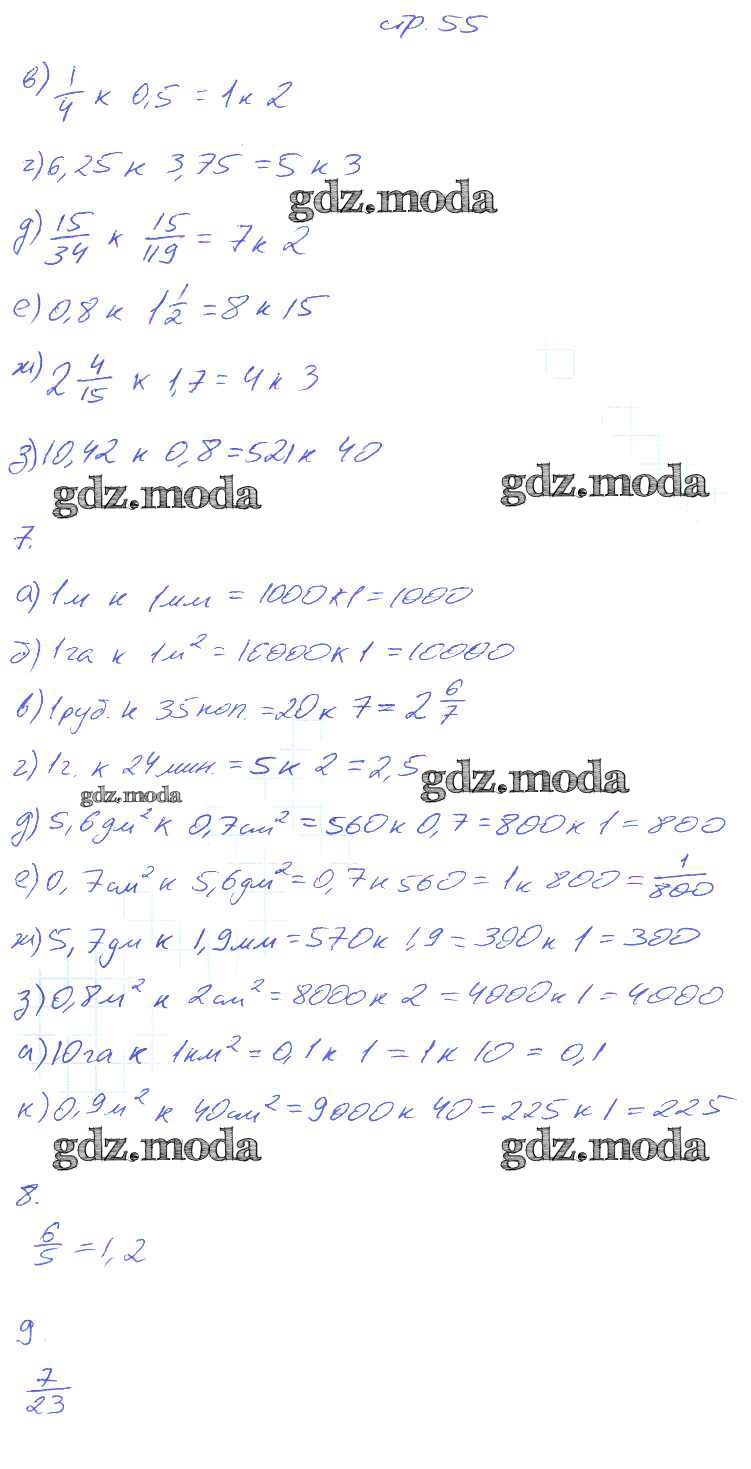 стр. 55
в) 1/4 к 0,5 = 1 к 2
г) 6,25 к 3,75 = 5 к 3
gdz.moda
д) 15/34 к 15/119 = 7 к 2
е) 0,8 к 1 1/2 = 8 к 15
ж) 2 4/15 к 1,7 = 4 к 3
з) 10,42 к 0,8 = 521 к 40
gdz.moda gdz.moda
7.
а) 1м к 1мм = 1000 к 1 = 1000
б) 1га к 1м² = 10000 к 1 = 10000
в) 1руб. к 35 коп. = 20 к 7 = 2 6/7
г) 1г. к 24 мин. = 5 к 2 = 2,5
gdz.moda
gdz.moda
д) 5,6дм² к 0,7см² = 560 к 0,7 = 800 к 1 = 800
е) 0,7см² к 5,6дм² = 0,7 к 560 = 1 к 800 = 1/800
ж) 5,7дм к 1,9мм = 570 к 1,9 = 300 к 1 = 300
з) 0,8м² к 2см² = 8000 к 2 = 4000 к 1 = 4000
и) 10га к 1км² = 0,1 к 1 = 1 к 10 = 0,1
к) 0,9м² к 40см² = 9000 к 40 = 225 к 1 = 225
gdz.moda gdz.moda
8.
6/5 = 1,2
9.
7/23